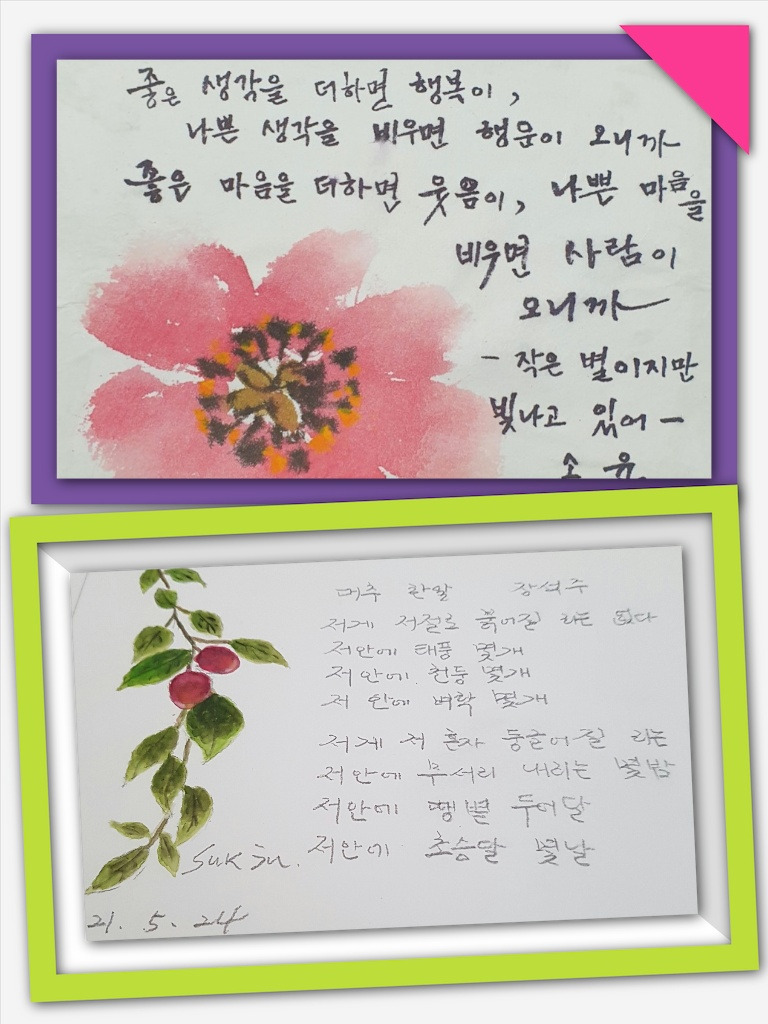 좋은 생각을 더하면 행복이,
나쁜 생각을 비우면 행운이 오니까
좋은 마음을 더하면 웃음이, 나쁜 마음을
비우면 사람이
오니까
- 작은 별이지만
빛나고 있어 -
소윤
대추 한알 장석주
저게 저절로 붉어질 리는 없다
저안에 태풍 몇개
저안에 천둥 몇개
저 안에 벼락 몇개
저게 저 혼자 둥글어질 리는
저안에 무서리 내리는 몇밤
저안에 땡볕 두어달
저안에 초승달 몇날
Suk
21. 5. 24